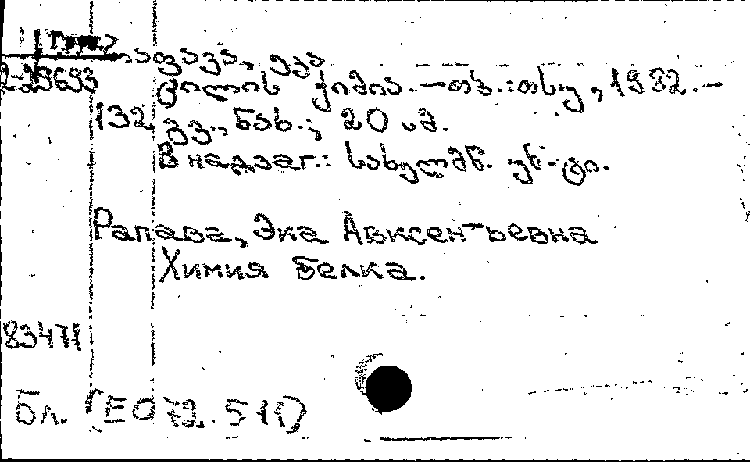 რაფავა, ეკა
2-29693
ცილის ქიმია. — თბ. : თსუ, 1982. —
132 გვ., ნახ.; 20 სმ.
В надзаг.: სახელმწ. უნ-ტი.
Рапава, Эка Авксентьевна
Химия белка.
83471
Бл. (ЕО 72.511)